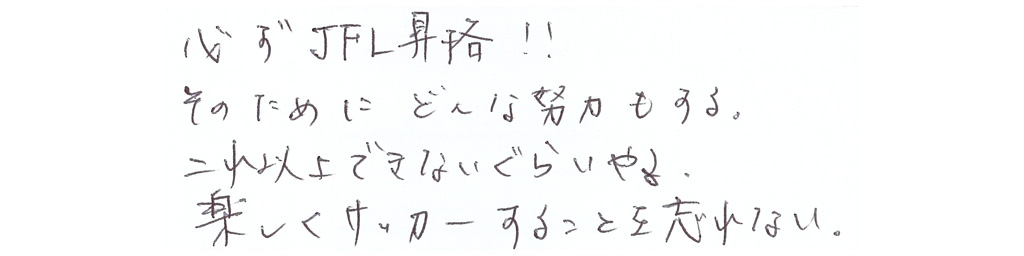 必ずJFL昇格!!
そのためにどんな努力もする。
これ以上できないぐらいやる.
楽しくサッカーすることを忘れない。